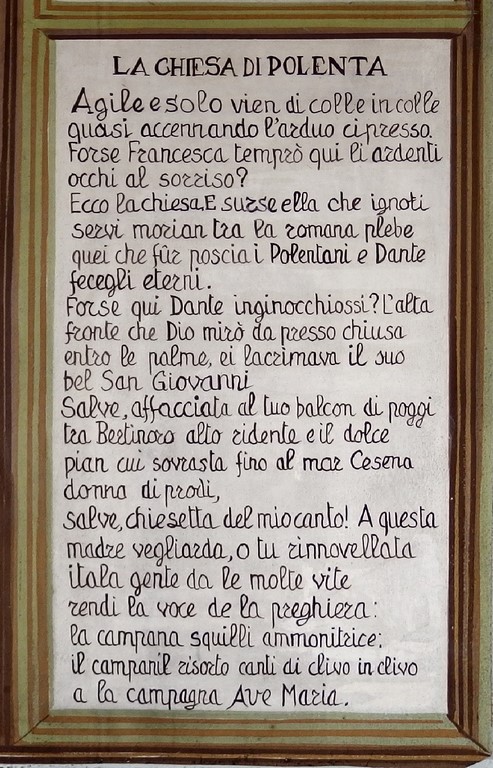 LA CHIESA DI POLENTA
Agile e solo vien di colle in colle
quasi accennando l'arduo cipresso.
Forse Francesca temprò qui li ardenti
occhi al sorriso?
Ecco la chiesa. E surse ella che ignoti
servi morian tra la romana plebe
quei che fûr poscia i Polentani e Dante
fecegli eterni.
Forse qui Dante inginocchiossi? L'alta
fronte che Dio mirò da presso chiusa
entro le palme, ei lacrimava il suo
bel San Giovanni
Salve, affacciata al tuo balcon di poggi
tra Bertinoro alto ridente e il dolce
pian cui sovrasta fino al mar Cesena
donna di prodi,
salve, chiesetta del mio canto! A questa
madre vegliarda, o tu rinnovellata
itala gente da le molte vite
rendi la voce de la preghiera:
la campana squilli ammonitrice:
il campanil risorto canti di clivo in clivo
a la campagna Ave Maria.